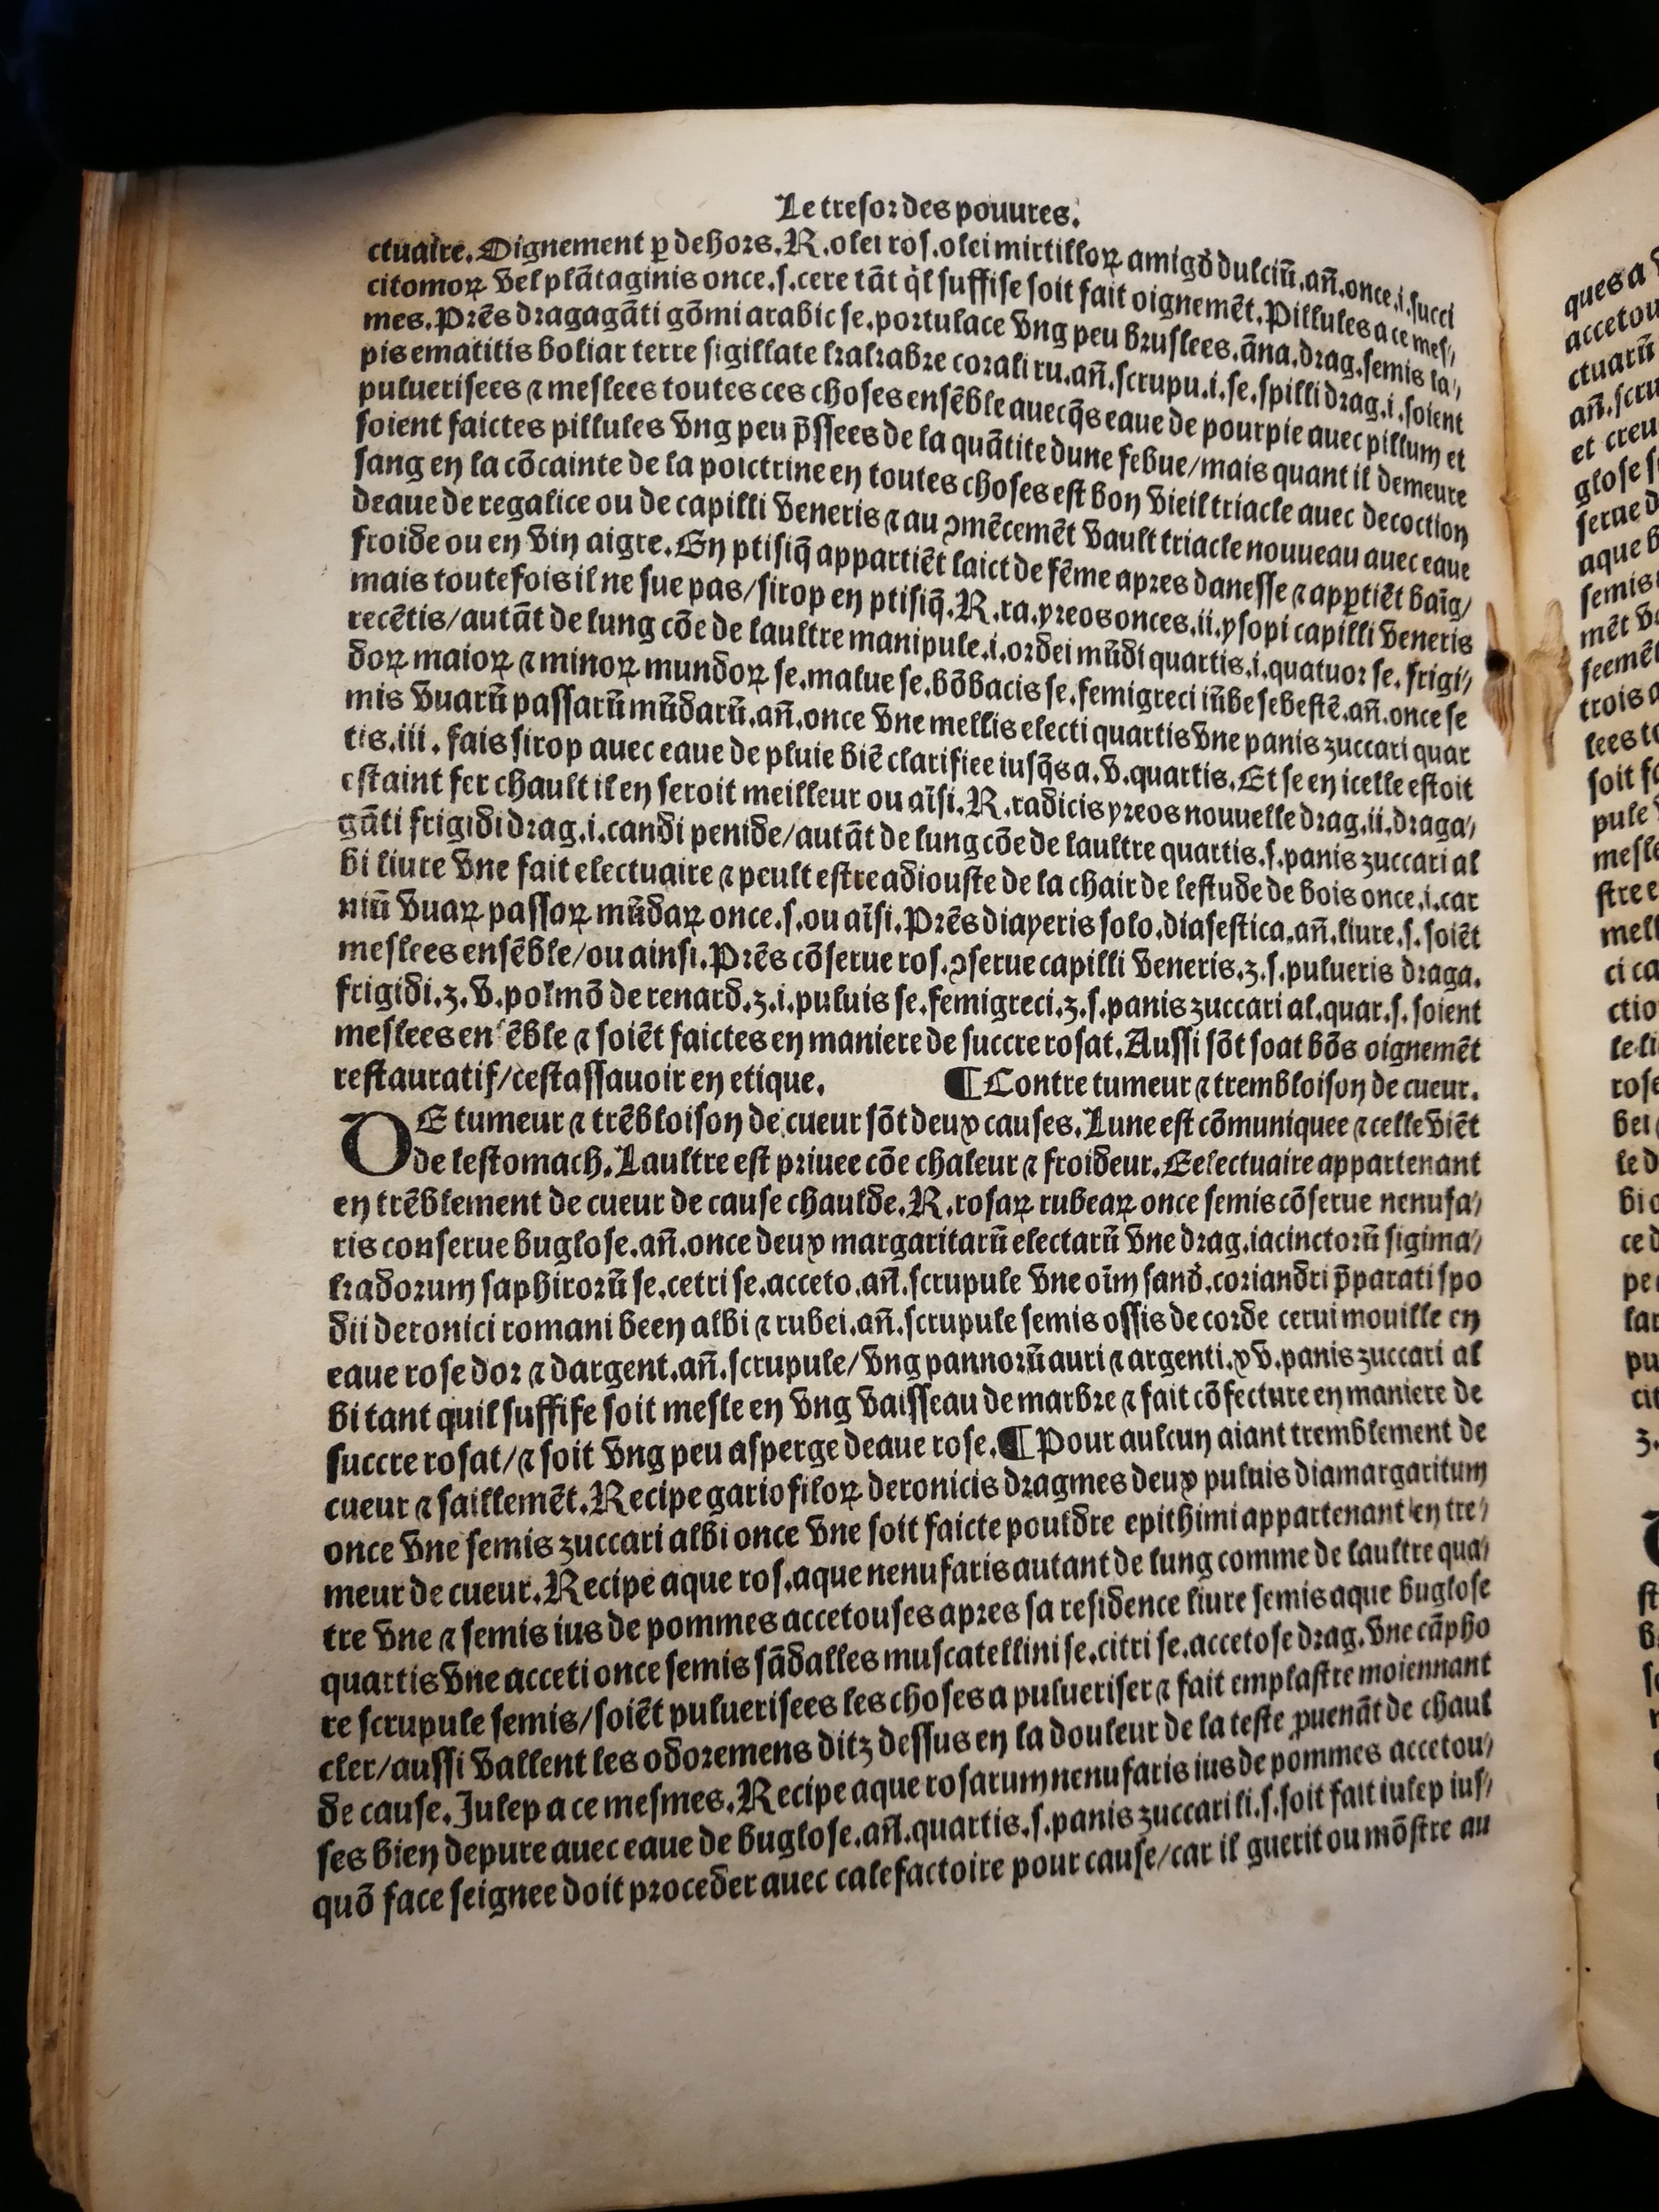 Le tresor des pouures.
ctuaire. Oignement ꝑ dehors. R. olei ros. olei mirtilloꝝ amigd̄ dulciū. an̄. once. i. succi
citomoꝝ vel plātaginis once. s. cere tāt q̇l suffise soit fait oignemēt. Pillules a ce mes/
mes. Prēs dragagāti gōmi arabic se. portulace vng peu bruslees. āna. drag. semis la/
pis ematitis boliar terre sigillate krakabre corali ru. an̄. scrupu. i. se. spilli drag. i. soient
puluerisees ⁊ meslees toutes ces choses ensēble auecq̄s eaue de pourpie auec pillum et
soient faictes pillules vng peu p̄ssees de la quātite dune febue/ mais quant il demeure
sang en la cōcainte de la poictrine en toutes choses est bon vieil triacle auec decoction
deaue de regalice ou de capilli veneris ⁊ au ꝯmēcemēt vault triacle nouueau auec eaue
froide ou en vin aigre. En ptisiq̄ appartiēt laict de fēme apres danesse ⁊ appꝑtiēt baīg/
mais toutefois il ne sue pas/ sirop en ptisiq̄. R. ra. yreos onces. ii. ysopi capilli veneris
recētis/ autāt de lung cōe de laultre manipule. i. ordei mūdi quartis. i. quatuor se. frigi/
doꝝ maioꝝ ⁊ minoꝝ mundoꝝ se. malue se. bōbacis se. femigreci iūbe sebestē. an̄. once se
mis vuarū passarū mūdarū. an̄. once vne mellis electi quartis vne panis zuccari quar
tis. iii. fais sirop auec eaue de pluie biē clarifiee iusq̄s a. v. quartis. Et se en icelle estoit
estaint fer chault il en seroit meilleur ou aīsi. R. radicis yreos nouuelle drag. ii. draga/
gāti frigidi drag. i. candi penide/ autāt de lung cōe de laultre quartis. s. panis zuccari al
bi liure vne fait electuaire ⁊ peult estre adiouste de la chair de lestude de bois once. i. car
niū vuaꝝ passoꝝ mūdaꝝ once. s. ou aīsi. Prēs diayeris solo. diasestica. an̄. liure. s. soiēt
meslees ensēble/ ou ainsi. Prēs cōserue ros. ꝯserue capilli veneris. ʒ. s. pulueris draga.
frigidi. ʒ. v. polmō de renard. ʒ. i. puluis se. femigreci. ʒ. s. panis zuccari al. quar. s. soient
meslees ensēble ⁊ soiēt faictes en maniere de succre rosat. Aussi sōt soat bōs oignemēt
restauratif/ cestassauoir en etique. ¶ Contre tumeur ⁊ trembloison de cueur.
DE tumeur ⁊ trēbloison de cueur sōt deux causes. Lune est cōmuniquee ⁊ celle viēt
de lestomach. Laultre est priuee cōe chaleur ⁊ froideur. Eelectuaire appartenant
en trēblement de cueur de cause chaulde. R. rosaꝝ rubeaꝝ once semis cōserue nenufa/
ris conserue buglose. an̄. once deux margaritarū electarū vne drag. iacinctorū sigima/
kradorum saphirorū se. cetri se. acceto. an̄. scrupule vne oīm sand̄. coriandri p̄parati spo
dii deronici romani been albi ⁊ rubei. an̄. scrupule semis ossis de corde cerui mouille en
eaue rose dor ⁊ dargent. an̄. scrupule/ vng pannorū auri ⁊ argenti. xv. panis zuccari al
bi tant quil suffife soit mesle en vng vaisseau de marbre ⁊ fait cōfecture en maniere de
succre rosat/ ⁊ soit vng peu asperge deaue rose. ¶ Pour aulcun aiant tremblement de
cueur ⁊ saillemēt. Recipe gariofiloꝝ deronicis dragmes deux puluis diamargaritum
once vne semis zuccari albi once vne soit faicte pouldre epithimi appartenant en tre/
meur de cueur. Recipe aque ros. aque nenufaris autant de lung comme de laultre qua/
tre vne ⁊ semis ius de pommes accetouses apres sa residence liure semis aque buglose
quartis vne acceti once semis sādalles muscatellini se. citri se. accetose drag. vne cāpho
re scrupule semis/ soiēt puluerisees les choses a pulueriser ⁊ fait emplastre moiennant
cler/ aussi vallent les odoremens ditz dessus en la douleur de la teste ꝓuenāt de chaul
de cause. Julep a ce mesmes. Recipe aque rosarum nenufaris ius de pommes accetou/
ses bien depure auec eaue de buglose. an̄. quartis. s. panis zuccari li. s. soit fait iulep ius/
quō face seignee doit proceder auec calefactoire pour cause/ car il guerit ou mōstre au